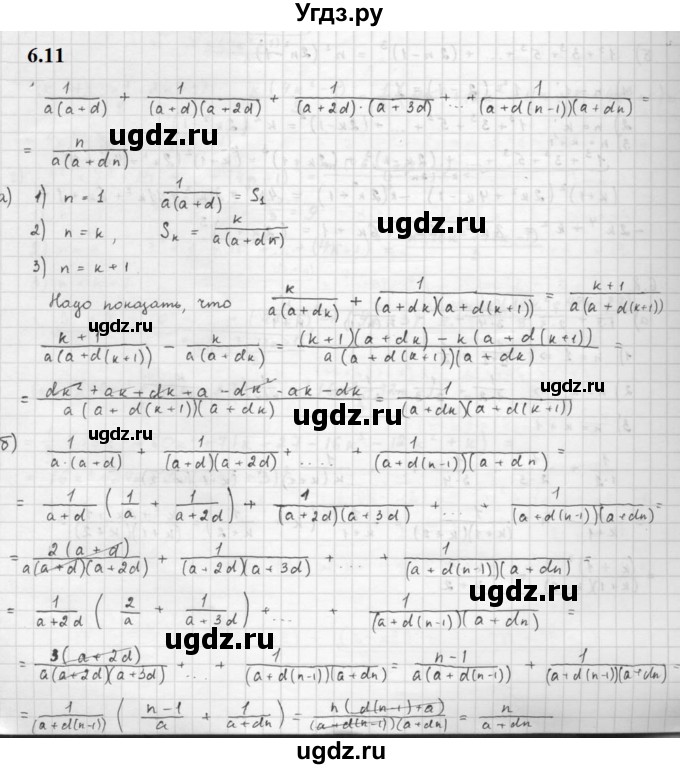 Угдз.ру
6.11
1/(a(a+d)) + 1/((a+d)(a+2d)) + 1/((a+2d)·(a+3d)) + ... + 1/((a+d(n-1))(a+dn)) =
= n/(a(a+dn)) ugdz.ru
а) 1) n = 1 1/(a(a+d)) = S₁
ugdz.ru
2) n = k, Sₖ = k/(a(a+dn)) ugdz.ru
3) n = k+1
Надо показать, что k/(a(a+dk)) + 1/((a+dk)(a+d(k+1))) = (k+1)/(a(a+d(k+1)))
ugdz.ru
(k+1)/(a(a+d(k+1))) - k/(a(a+dk)) = ((k+1)(a+dk) - k(a+d(k+1)))/(a(a+d(k+1))(a+dk)) =
= (dk²+ak+dk+a-dk²-ak-dk)/(a(a+d(k+1))(a+dk)) = 1/((a+dk)(a+d(k+1))) ugdz.ru
ugdz.ru
б) 1/(a·(a+d)) + 1/((a+d)(a+2d)) + .... + 1/((a+d(n-1))(a+dn)) =
ugdz.ru
= 1/(a+d) (1/a + 1/(a+2d)) + 1/((a+2d)(a+3d)) + ... + 1/((a+d(n-1))(a+dn)) =
ugdz.ru
= 2(a+d)/(a(a+d)(a+2d)) + 1/((a+2d)(a+3d)) + ... + 1/((a+d(n-1))(a+dn)) =
ugdz.ru
= 1/(a+2d) (2/a + 1/(a+3d)) + ... + 1/((a+d(n-1))(a+dn)) =
ugdz.ru
= 3(a+2d)/(a(a+2d)(a+3d)) + ... + 1/((a+d(n-1))(a+dn)) = (n-1)/(a(a+d(n-1))) + 1/((a+d(n-1))(a+dn)) =
ugdz.ru
= 1/(a+d(n-1)) ((n-1)/a + 1/(a+dn)) = n(d(n-1)+a)/((a+d(n-1))(a+dn)) = n/(a+dn)
ugdz.ru
ugdz.ru